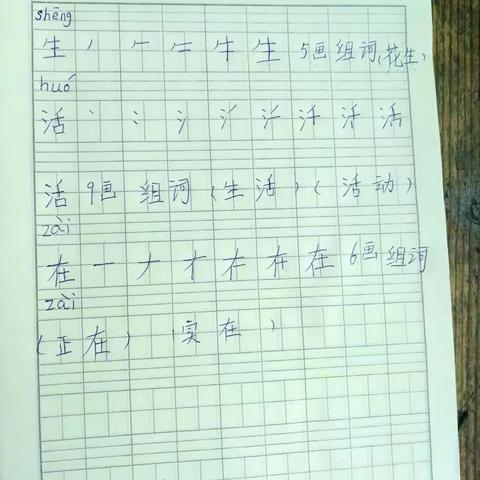 shēng
生 丿 𠂉 𠂒 牛 生 5画 组词(花生)
huó
活 丶 冫 氵 活
活 9画 组词(生活)(活动)
zài
在 一 ナ 在 6画 组词
zài
(正在) (实在)